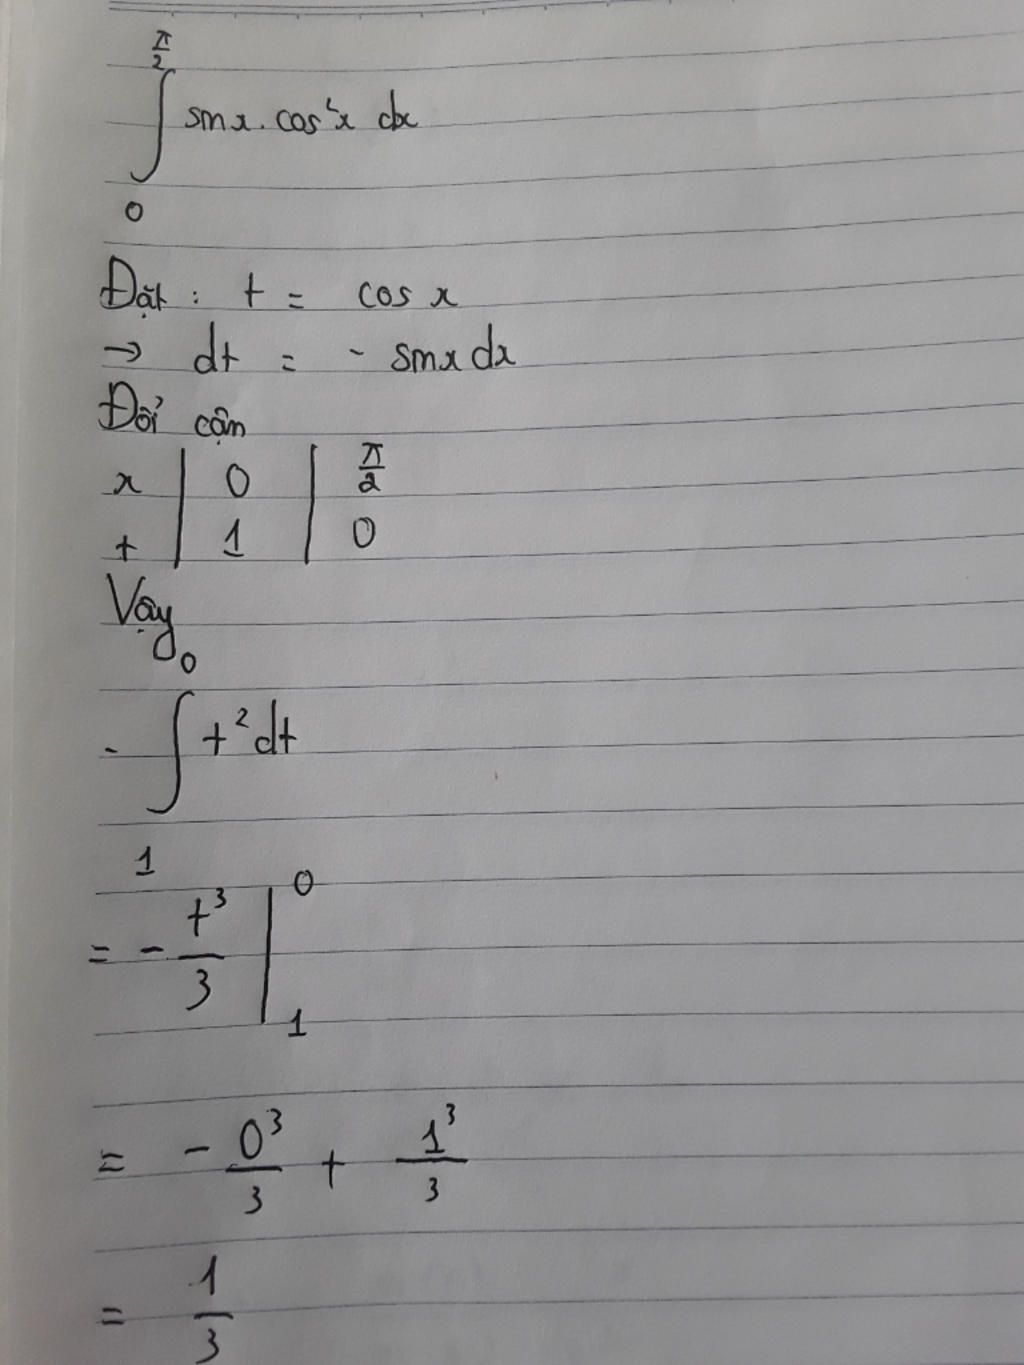 π/2
∫ sinx. cos²x dx
0
Đặt: t = cos x
→ dt = - sinx dx
Đổi cận
x | 0 | π/2
t | 1 | 0
Vậy
0
- ∫ t² dt
1
= - t³/3 | 0 1
= - 0³/3 + 1³/3
= 1/3